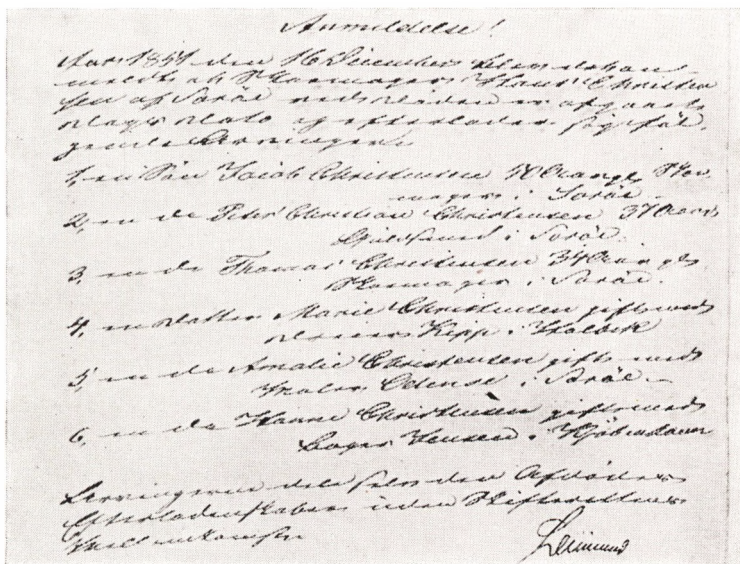 Anmeldelse!
Aar 1854 den 16 December blev det an
meldt at Skomager Hans Christen
sen af Sorøe ved Døden er afgaaet
og efterlader sig føl
gende Arvingere
1, en Søn Jacob Christensen 40 Aar gl. Sko
mager i Sorøe.
2, en do Peter Christian Christensen 37 Aar
i Sorøe.
3, en do Thomas Christensen 34 Aar gl
Skomager i Sorøe.
4, en Datter Marie Christensen gift med
Kipp i Holbek
5, en do Amalie Christensen gift med
Maler Odense i Sorøe
6, en do Hanne Christensen gift med
Bager Jensen i Kjøbenhavn
Arvingerne dele selv den Afdødes
Efterladenskaber uden Skifterettens
Mellemkomst